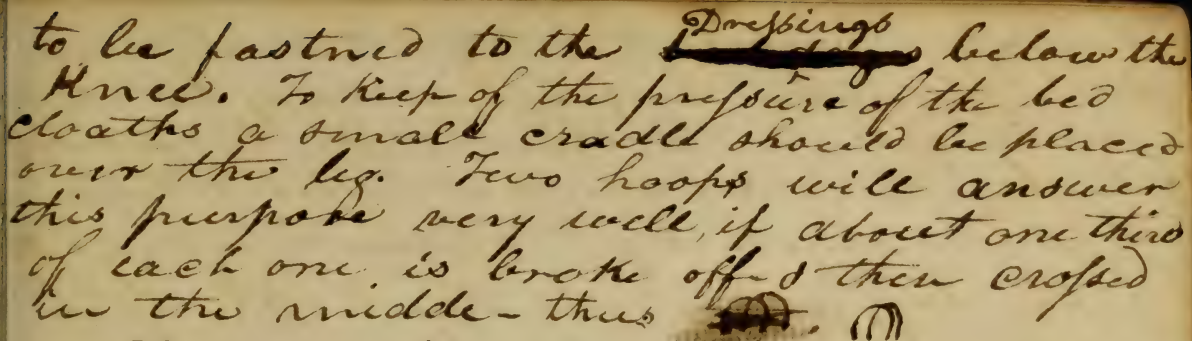 to be fastned to the Dressings below the
Knee. To Keep of the prefsure of the bed
cloaths a small cradle should be placed
over the leg. Two hoops will answer
this purpose very well, if about one third
of each one is broke off & then crofsed
in the midde - thus